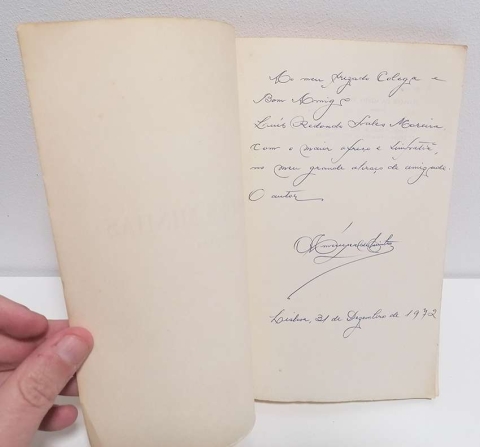 Ao meu prezado Colega e
Bom Amigo
Luís Redondo Soales Moreira
com o maior apreço e simpatia,
no meu grande abraço de amizade.
O autor
Lisboa, 31 de Dezembro de 1972